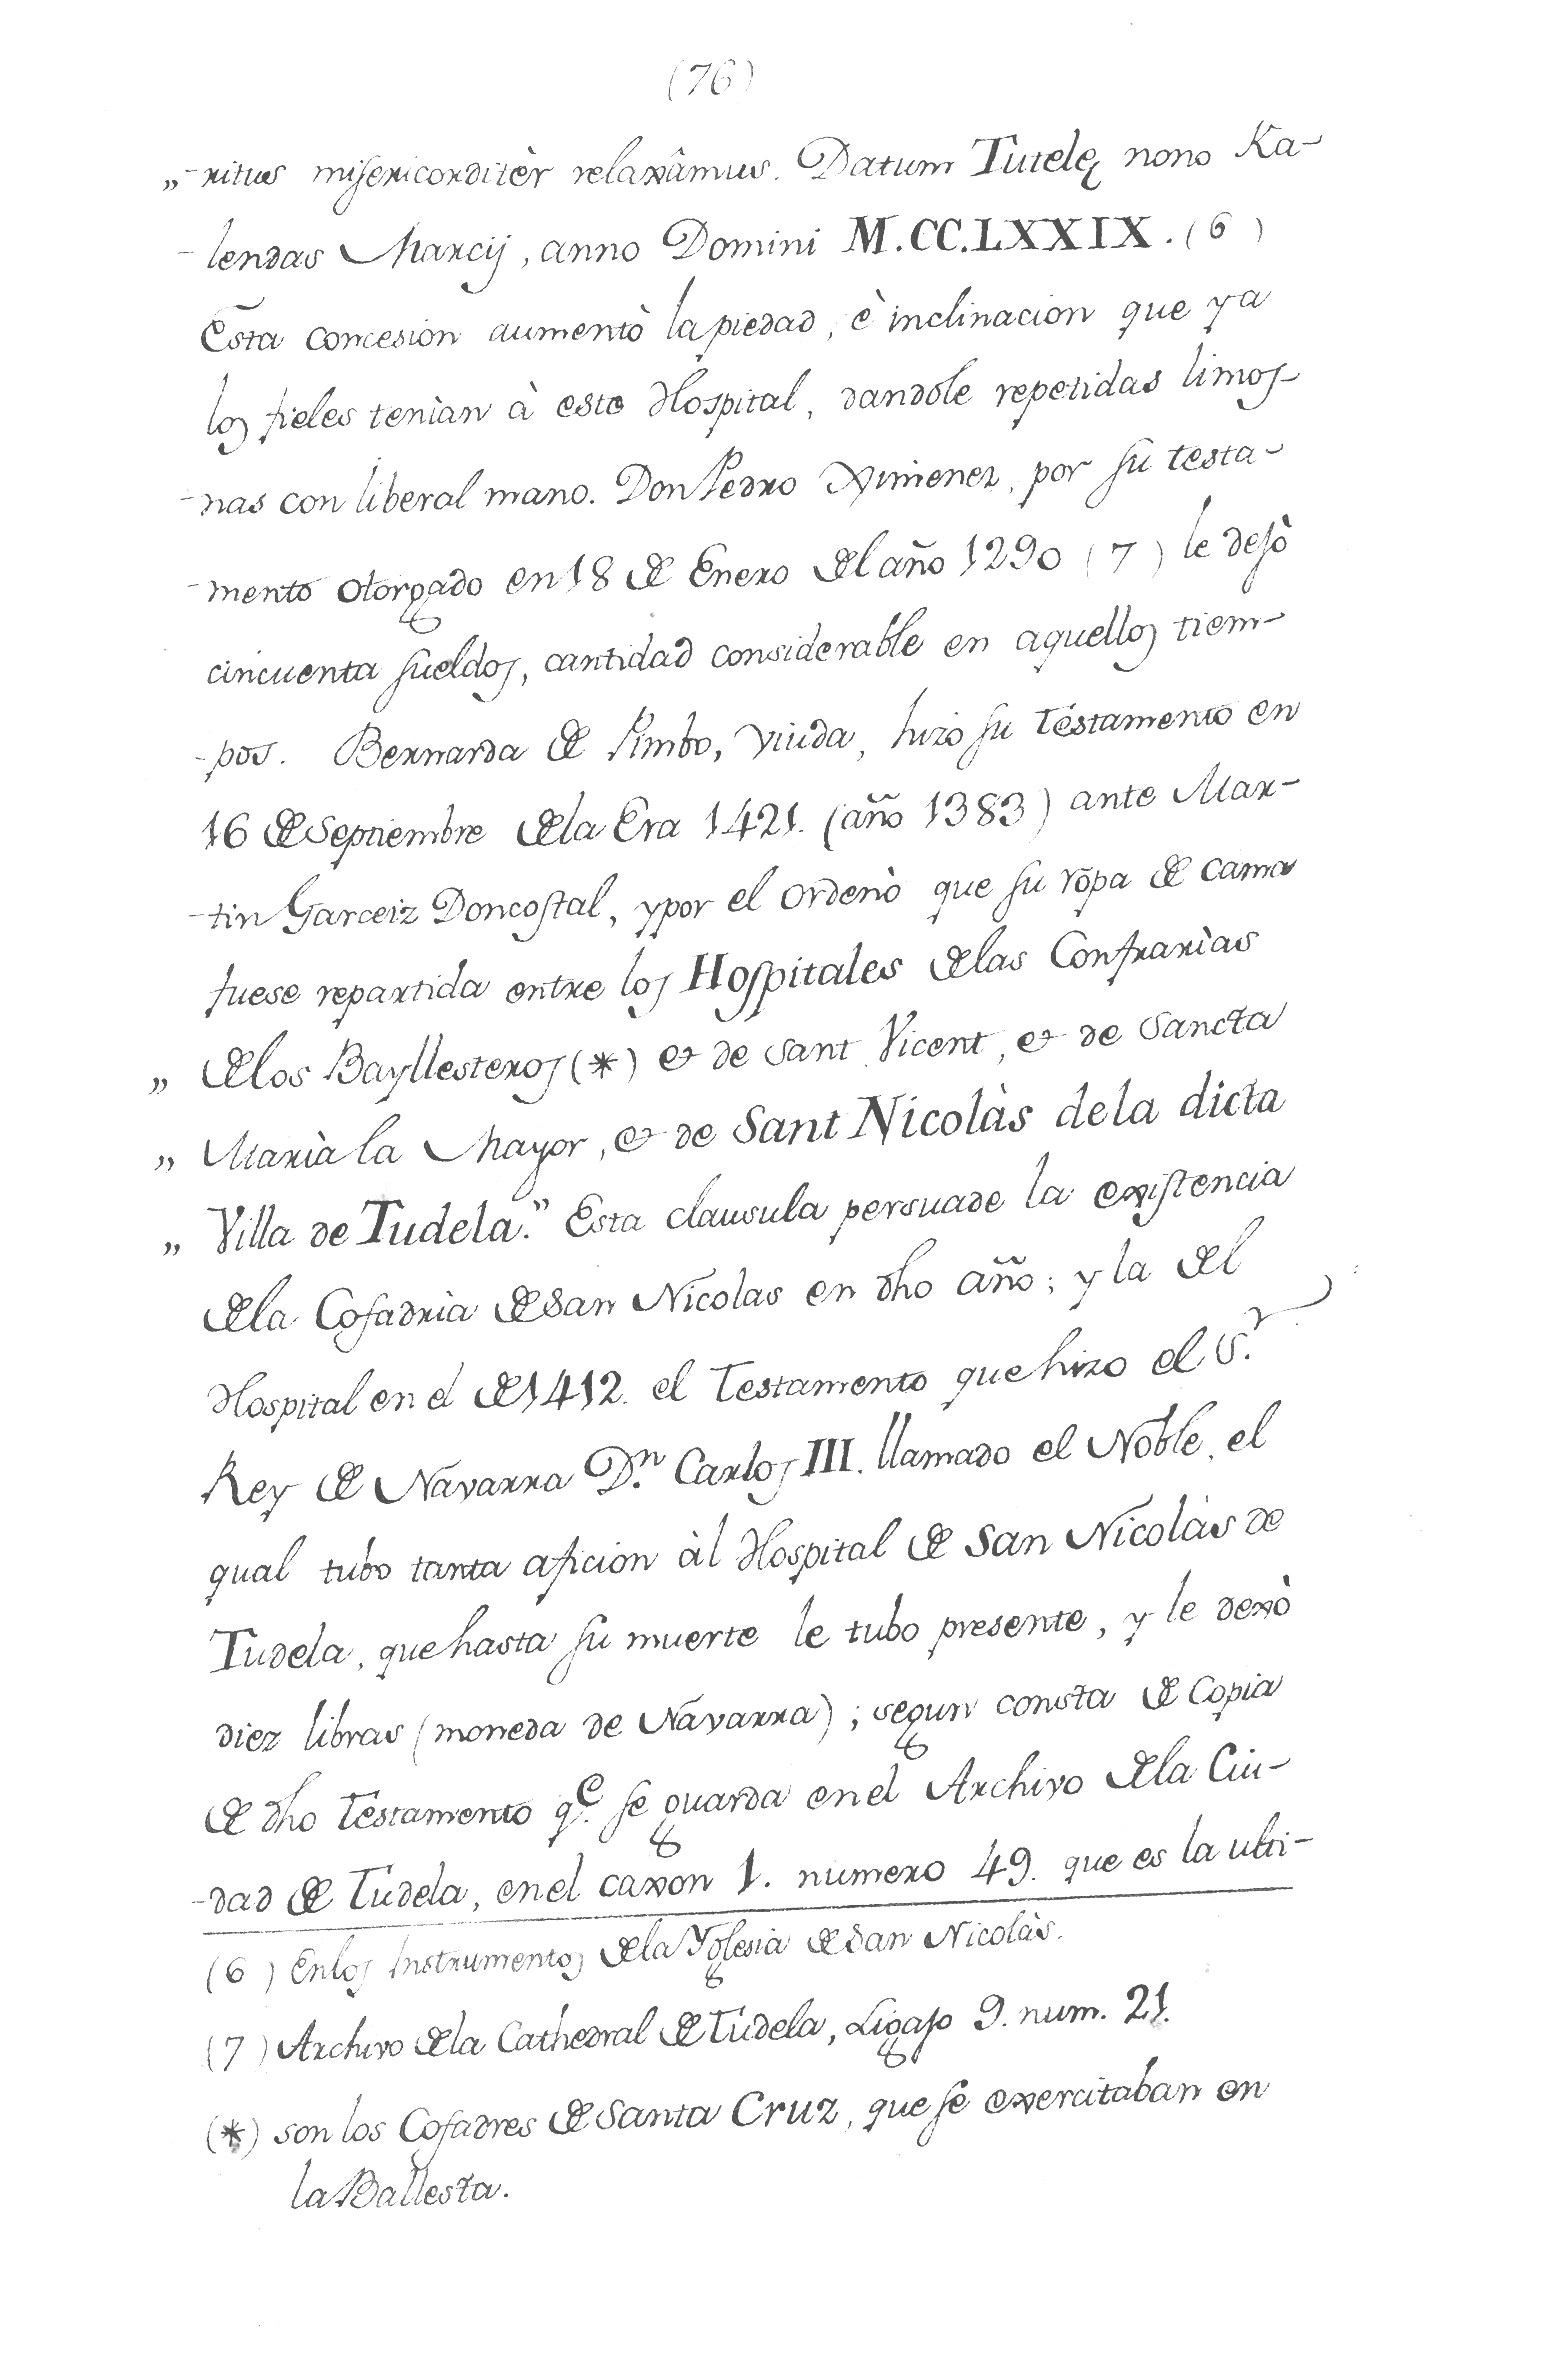 (76)
„-ritus misericorditèr relaxâmus. Datum Tutelę nono Ka-
-lendas Marcij, anno Domini M.CC.LXXIX. (6)
Esta concesion aumentò la piedad, è inclinacion que ya
los fieles tenian à este Hospital, dandole repetidas limos-
-nas con liberal mano. Don Pedro Ximenez, por su testa-
-mento otorgado en 18 de Enero del año 1290 (7) le dejò
cincuenta sueldos, cantidad considerable en aquellos tiem-
-pos. Bernarda de Pimbo, viuda, hizo su testamento en
16 de Septiembre de la Era 1421. (año 1383) ante Mar-
-tin Garceiz Doncostal, y por el ordenò que su ropa de cama
fuese repartida entre los Hospitales de las Confrarias
„ de los Bayllesteros (*) et de Sant Vicent, et de Sancta
„ Maria la Mayor, et de Sant Nicolàs de la dicta
„ Villa de Tudela.” Esta clausula persuade la existencia
de la Cofadria de San Nicolas en dho año; y la del
Hospital en el de 1412. el Testamento que hizo el S.r
Rey de Navarra D.n Carlos III. llamado el Noble, el
qual tubo tanta aficion àl Hospital de San Nicolàs de
Tudela, que hasta su muerte le tubo presente, y le dexò
diez libras (moneda de Navarra); segun consta de Copia
de dho Testamento q.e se guarda en el Archivo de la Ciu-
-dad de Tudela, en el caxon 1. numero 49. que es la ulti-
(6) En los Instrumentos de la Yglesia de San Nicolàs.
(7) Archivo de la Cathedral de Tudela, Ligajo 9. num. 21.
(*) son los Cofadres de Santa Cruz, que se exercitaban en
la Ballesta.